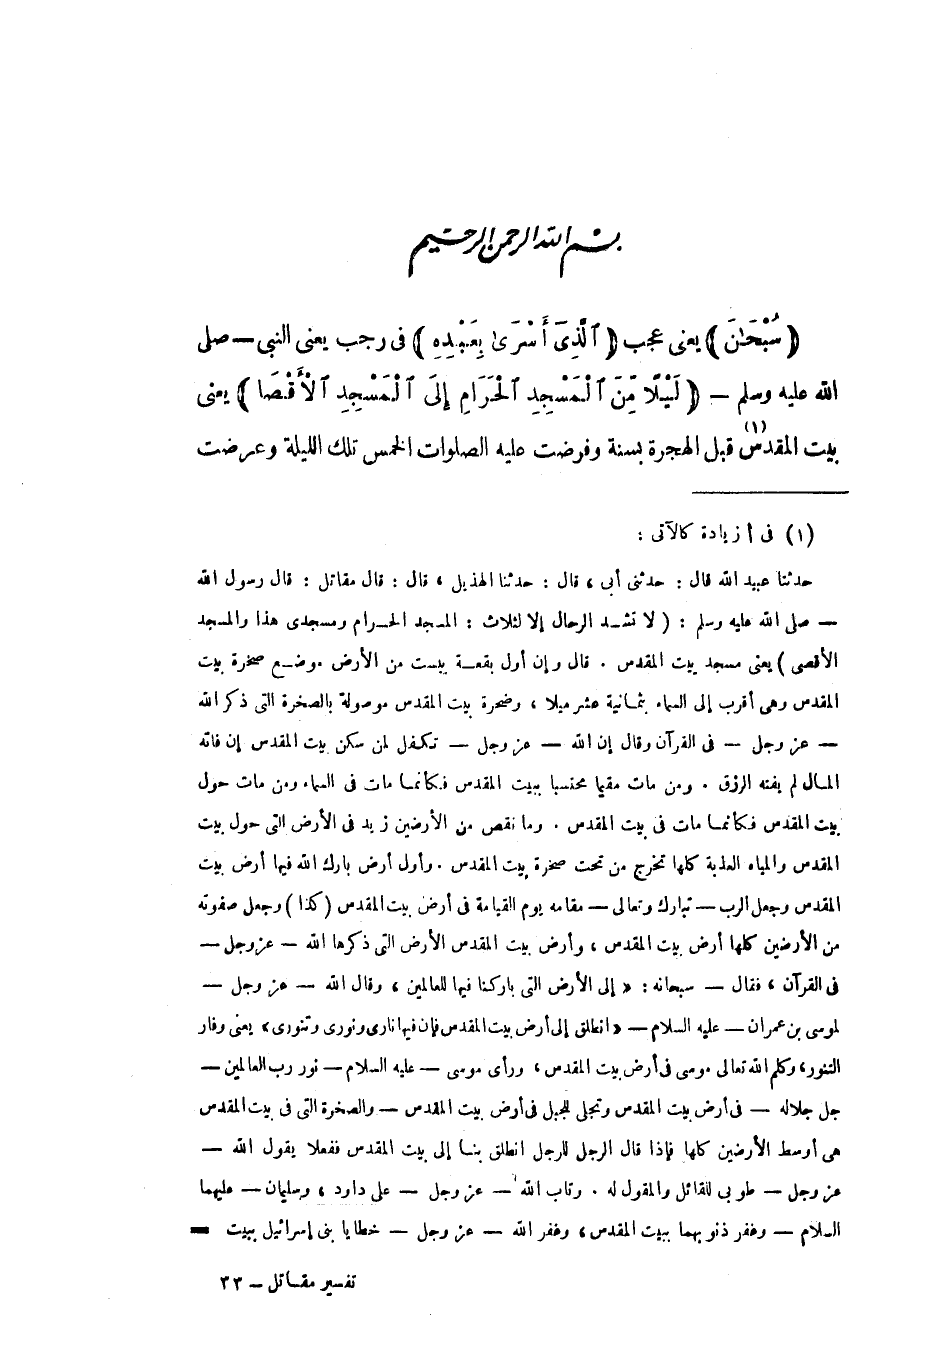 بسم الله الرحمن الرحيم
( سُبْحَانَ ) يعنى عجب ( ٱلَّذِىٓ أَسْرَىٰ بِعَبْدِهِ ) فى رجب يعنى النبى — صلى
الله عليه وسلم — ( لَيْلًا مِّنَ ٱلْمَسْجِدِ ٱلْحَرَامِ إِلَى ٱلْمَسْجِدِ ٱلْأَقْصَا ) يعنى
بيت المقدس (١) قبل الهجرة بسنة وفرضت عليه الصلوات الخمس تلك الليلة وعرضت
(١) فى أ زيادة كالآتى :
حدثنا عبيد الله قال : حدثنى أبى ، قال : حدثنا الهذيل ، قال : قال مقاتل : قال رسول الله
— صلى الله عليه وسلم : ( لا تشد الرحال إلا لثلاث : المسجد الحرام ومسجدى هذا والمسجد
الأقصى ) يعنى مسجد بيت المقدس . قال وإن أول بقعة بيست من الأرض موضع صخرة بيت
المقدس وهى أقرب إلى السماء بثمانية عشر ميلا ، وضحرة بيت المقدس موصولة بالصخرة التى ذكر الله
— عز وجل — فى القرآن وقال إن الله — عز وجل — تكفل لمن سكن بيت المقدس إن فاته
المال لم يفته الرزق . ومن مات مقيما محتسبا ببيت المقدس فكأنما مات فى السماء ومن مات حول
بيت المقدس فكأنما مات فى بيت المقدس . وما نقص من الأرضين زيد فى الأرض التى حول بيت
المقدس والمياه العذبة كلها تخرج من تحت صخرة بيت المقدس . وأول أرض بارك الله فيها أرض بيت
المقدس وجعل الرب — تبارك وتعالى — مقامه يوم القيامة فى أرض بيت المقدس (كذا) وجعل صفوته
من الأرضين كلها أرض بيت المقدس ، وأرض بيت المقدس الأرض التى ذكرها الله — عز وجل —
فى القرآن ، فقال — سبحانه : « إلى الأرض التى باركنا فيها للعالمين ، وقال الله — عز وجل —
لموسى بن عمران — عليه السلام — « انطلق إلى أرض بيت المقدس فإن فيها نارى ونورى وتنورى » يعنى وفار
التنور، وكلم الله تعالى موسى فى أرض بيت المقدس ، ورأى موسى — عليه السلام — نور رب العالمين —
جل جلاله — فى أرض بيت المقدس وتجلى للجبل فى أرض بيت المقدس — والصخرة التى فى بيت المقدس
هى أوسط الأرضين كلها فإذا قال الرجل للرجل انطلق بنا إلى بيت المقدس ففعلا يقول الله —
عز وجل — طوبى للقائل والمقول له . وتاب الله — عز وجل — على داود ، وسليمان — عليهما
السلام — وغفر ذنوبهما ببيت المقدس ، وغفر الله — عز وجل — خطايا بنى إسرائيل ببيت =
تفسير مقاتل — ٣٣